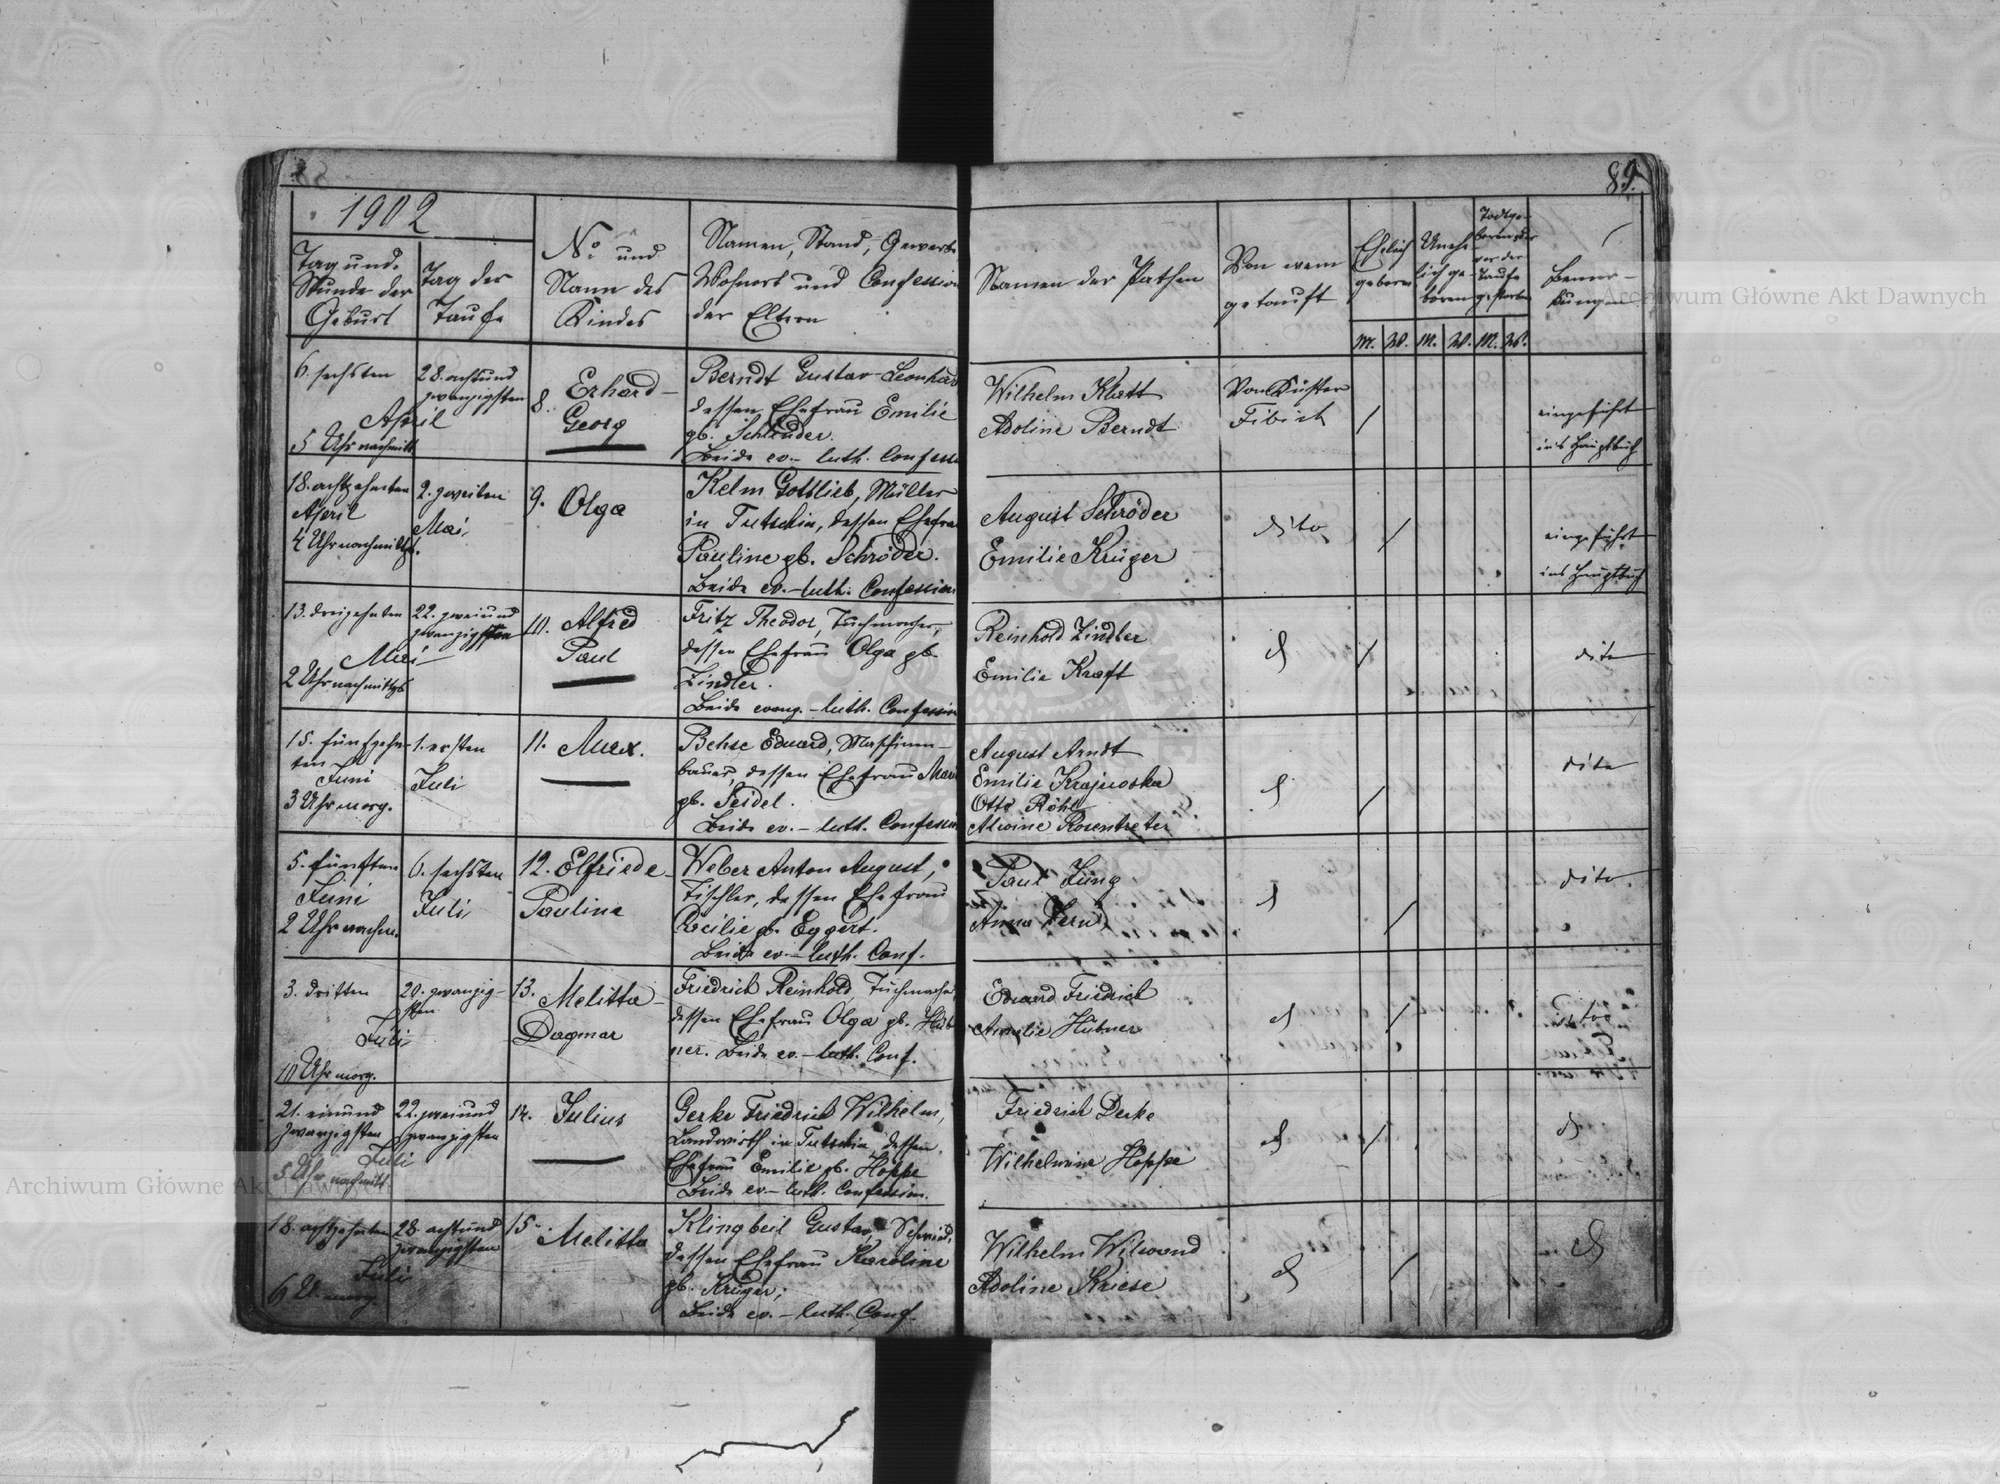 88
89.
1902
Tag und
Stunde der
Geburt
Tag der
Taufe
No und
Name des
Kindes
Namen, Stand, Gewerbe
Wohnort und Confession
der Eltern
Namen der Pathen
Von wem
getauft
Ehelich
geboren
Unehe-
lich ge-
boren
Todtge-
boren oder
vor der
Taufe
gestorben
Bemer-
kung
M. W. M. W. M. W.
Archiwum Główne Akt Dawnych
6. sechsten
April
5 Uhr nachmitt
28. achtund
zwanzigsten
8. Erhard-
Georg
Berndt Gustav-Leonhard
dessen Ehefrau Emilie
gb. Schlender.
Beide ev.- luth. Confess
Wilhelm Klatt
Adoline Berndt
Von Küster
Fibich
eingeführt
ins Hauptbuch
18. achtzehnten
April
4 Uhr nachmittg.
2. zweiten
Mai
9. Olga
Kelm Gottlieb, Müller
in Tutschin, dessen Ehefra
Pauline gb. Schröder.
Beide ev.-luth. Confession
August Schröder
Emilie Krüger
dito
eingeführt
ins Hauptbuch
13. dreizehnten
Mai
2 Uhr nachmittgs
22. zweiund
zwanzigsten
10. Alfred
Paul
Fritz Theodor, Tuchmacher,
dessen Ehefrau Olga gb.
Zindler.
Beide evang.-luth. Confession
Reinhold Zindler
Emilie Kraft
d
dito
15. fünfzehn-
ten
Juni
3 Uhr morg.
1. ersten
Juli
11. Max.
Behse Eduard, Maschinen-
bauer, dessen Ehefrau Mari
gb. Seidel.
Beide ev.- luth. Confession
August Arndt
Emilie Krajewska
Otto Röhl
Alwine Rosentreter
d
dito
5. fünften
Juni
2 Uhr nachm.
6. sechsten
Juli
12. Elfriede-
Pauline
Weber Anton August,
Tischler, dessen Ehefrau
Cäcilie gb. Eggert.
Beide ev.-luth. Conf.
Paul Jung
Anna
d
dito.
3. dritten
Juli
10 Uhr morg.
20. zwanzig-
sten
13. Melitta-
Dagmar
Friedrich Reinhold, Tuchmacher,
dessen Ehefrau Olga gb. Hüb
ner. Beide ev.-luth. Conf.
Eduard Friedrich
Amalie Hübner
d
dito
21. einund
zwanzigsten
Juli
5 Uhr nachmitt.
22. zweiund
zwanzigsten
14. Julius
Gerke Friedrich Wilhelm,
Landwirth in Tutschin, dessen
Ehefrau Emilie gb. Hoppe
Beide ev.-luth. Confession.
Friedrich Derke
Wilhelmine Hoppe
d
d
Archiwum Główne Akt Dawnych
18. achtzehnten
Juli
6 U. morg.
28. achtund
zwanzigsten
15. Melitta
Klingbeil Gustav, Schmied,
dessen Ehefrau Karoline
gb. Krüger,
Beide ev.-luth. Conf.
Wilhelm Wilwand
Adoline Kriese
d
d